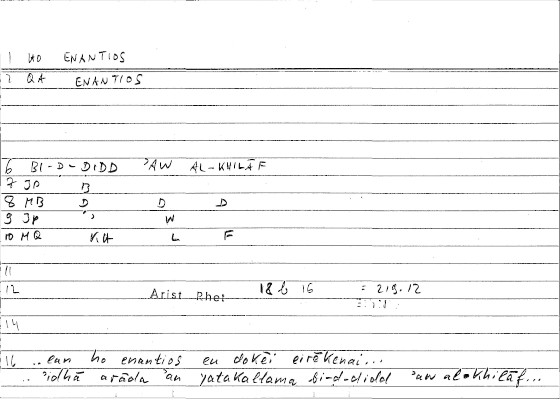 1 HO ENANTIOS
2 QA ENANTIOS
6 BI-D-DIDD ʾAW AL-KHILĀF
7 JP B
8 MB D D D
9 JP ʾ W
10 MQ KH L F
11
12 Arist Rhet 18 b 16 = 219.12
14
16 ..ean ho enantios eu dokēi eirēkenai...
.. ʾidhā arāda ʾan yatakallama bi-d-didd ʾaw al-khilāf...